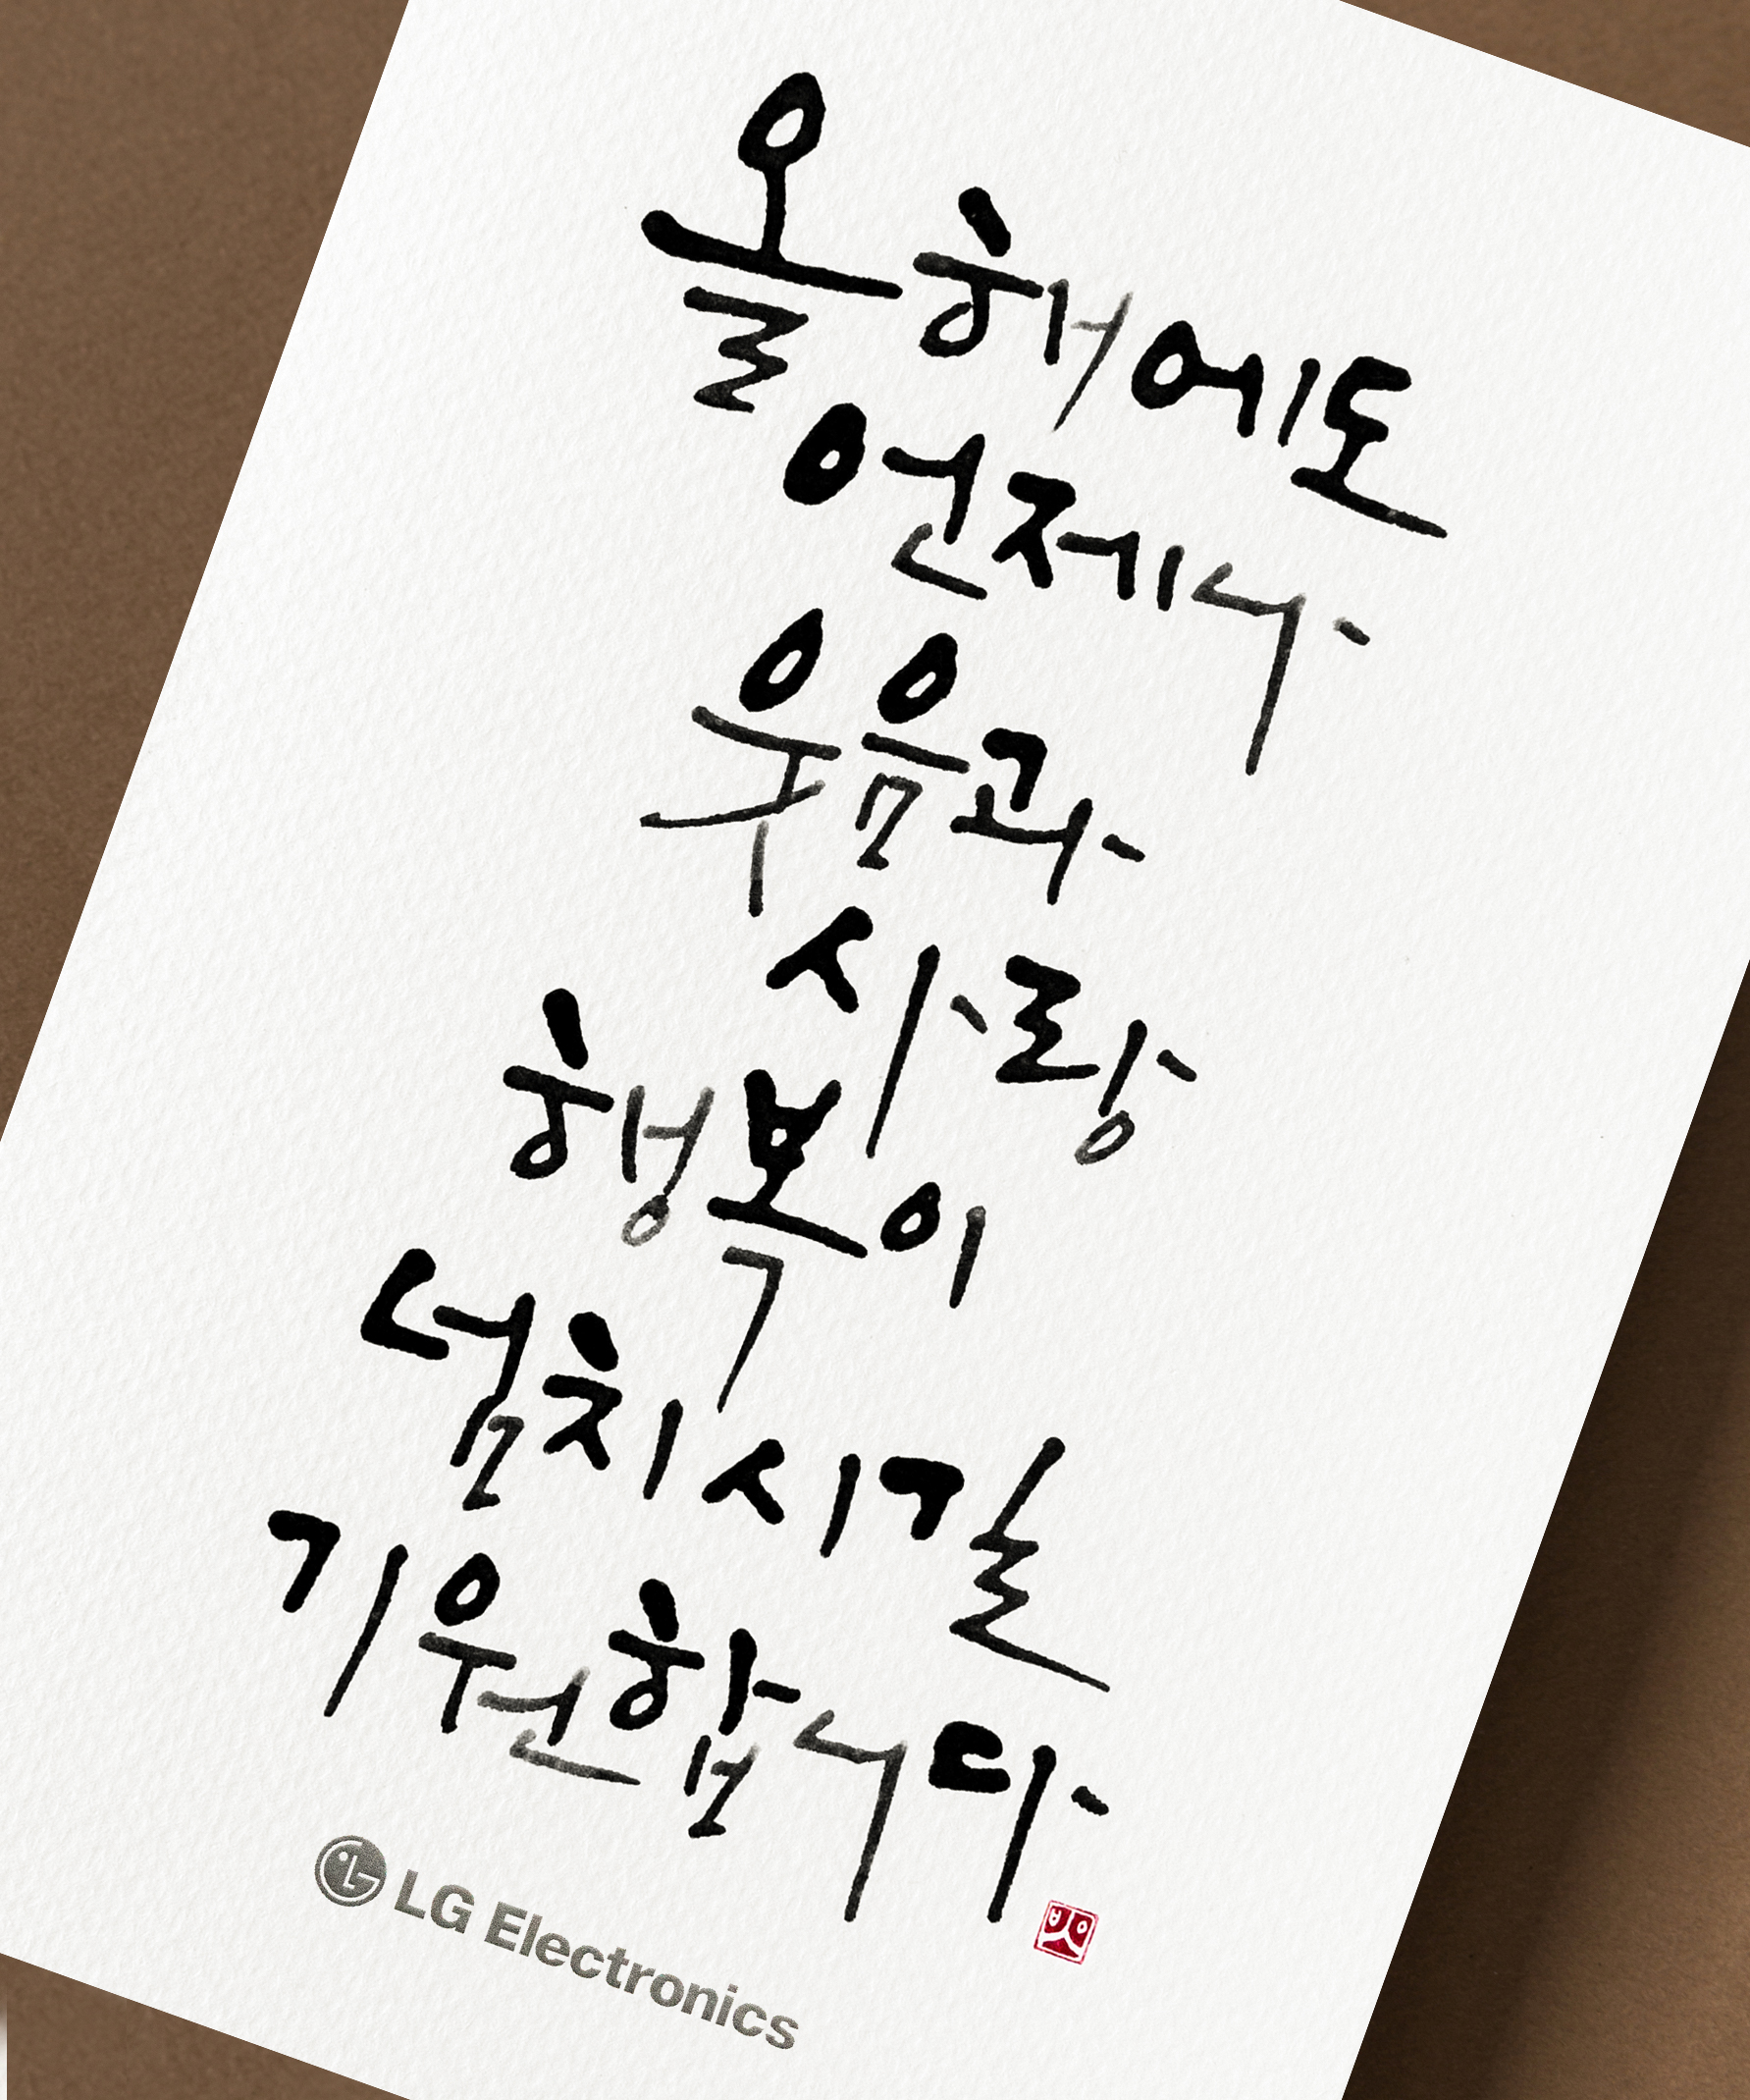 올해에도
언제나
웃음과
사랑
행복이
넘치시길
기원합니다
LG Electronics